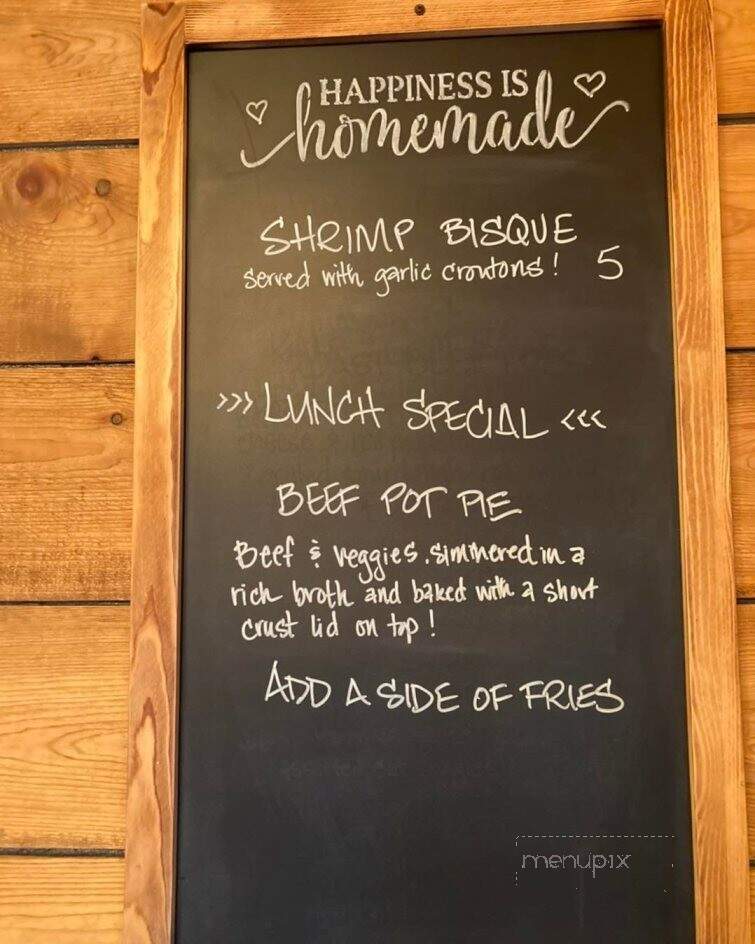 HAPPINESS IS
homemade
SHRIMP BISQUE
served with garlic croutons! 5
>>> LUNCH SPECIAL <<<
BEEF POT PIE
Beef & veggies. simmered in a
rich broth and baked with a short
crust lid on top!
ADD A SIDE OF FRIES
menupix